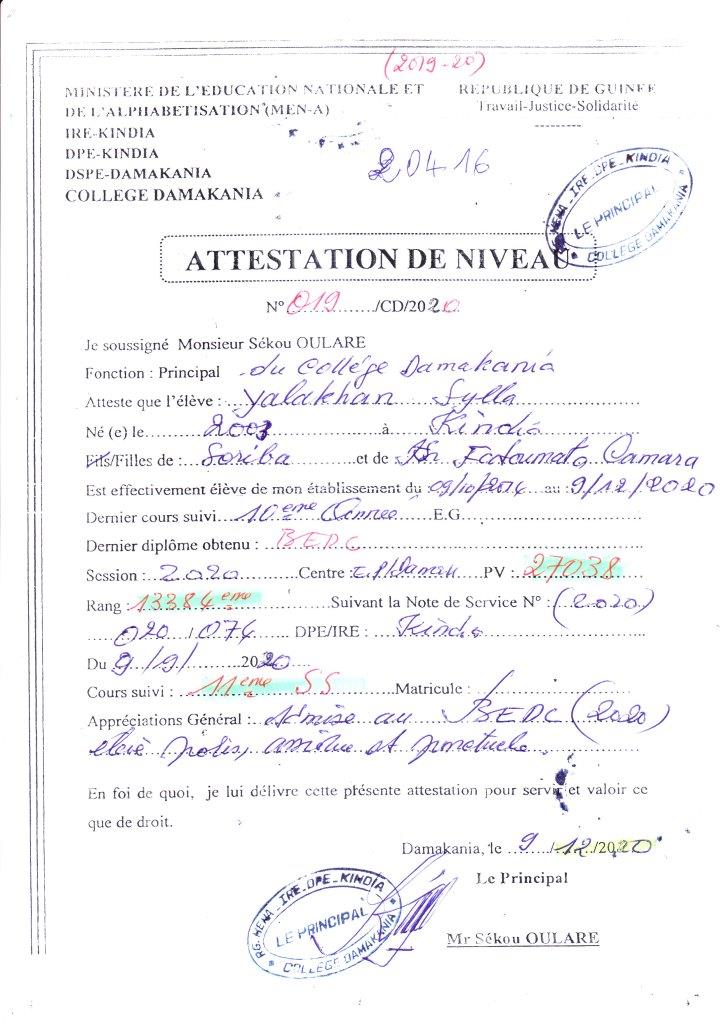 (2019-20)
MINISTERE DE L'EDUCATION NATIONALE ET
DE L'ALPHABETISATION (MEN-A)
IRE-KINDIA
DPE-KINDIA
DSPE-DAMAKANIA
COLLEGE DAMAKANIA
REPUBLIQUE DE GUINEE
Travail-Justice-Solidarité
20416
RG.MENA_IRE_DPE_KINDIA
LE PRINCIPAL
COLLEGE DAMAKANIA
ATTESTATION DE NIVEAU
N° 019 /CD/2020
Je soussigné Monsieur Sékou OULARE
Fonction : Principal du Collège Damakania
Atteste que l'élève : Yalakhan Sylla
Né (e) le 2003 à Kindia
Fils/Filles de : Soriba et de Fatoumata Camara
Est effectivement élève de mon établissement du : au : 9/12/2020
Dernier cours suivi 10ème Année E.G
Dernier diplôme obtenu : BEDC
Session : 2020 Centre : PV : 27038
Rang : 13384ème Suivant la Note de Service N° : (2020)
020 / 074 DPE/IRE : Kindia
Du 9/9/ 2020
Cours suivi : 11ème SS Matricule : /
Appréciations Général : Admise au BEDC (2020)
polis, et
En foi de quoi, je lui délivre cette présente attestation pour servir et valoir ce
que de droit.
Damakania, le 9/12/2020
Le Principal
RG.MENA_IRE_DPE_KINDIA
LE PRINCIPAL
COLLEGE DAMAKANIA
Mr Sékou OULARE